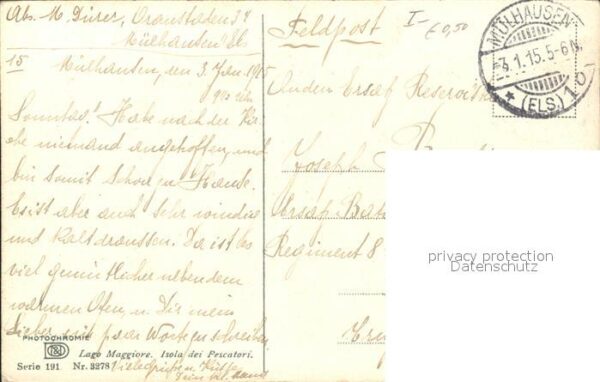 Abs. M. Dürer, Oranstaden 34
Mülhausen Els
15
Mülhausen, den 3. Jan. 1915
Sonntag! Habe nach der Kir-
che niemand angetroffen und
bin somit schon zu Hause.
Es ist aber auch sehr windig
und kalt draussen. Da ist es
viel gemütlicher neben dem
warmen Ofen, u. Dir mein
Lieber mit paar Worten schreiben
Feldpost
I-
€ 0,50
MÜLHAUSEN
-3.1.15.5-6N.
* (ELS.) 10
An den Ersatz Reservist
Joseph
Ersatz Bat
Regiment 8
privacy protection
Datenschutz
PHOTOCHROMIE
Lago Maggiore. Isola dei Pescatori.
Serie 191 Nr. 3278